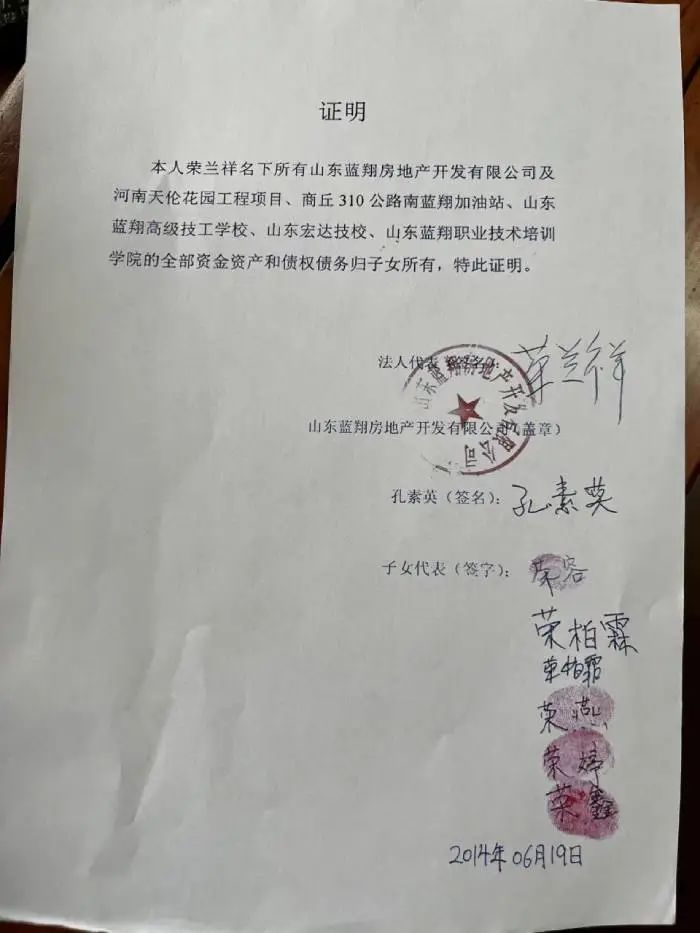 证明
本人荣兰祥名下所有山东蓝翔房地产开发有限公司及
河南天伦花园工程项目、商丘310公路南蓝翔加油站、山东
蓝翔高级技工学校、山东宏达技校、山东蓝翔职业技术培训
学院的全部资金资产和债权债务归子女所有，特此证明。
法人代表 签名 荣兰祥
山东蓝翔房地产开发有限公司
山东蓝翔房地产开发有限公司（盖章）
孔素英（签名）：孔素英
子女代表（签字）：荣容
荣柏霖
荣柏霜
荣燕
荣婷
荣鑫
2014年06月19日